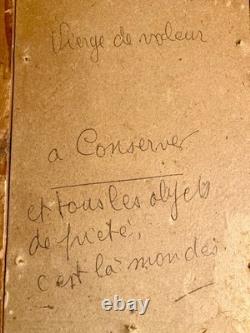 Vierge de valeur
a Conserver
et tous les objets
de piété,
c'est là mon dés.